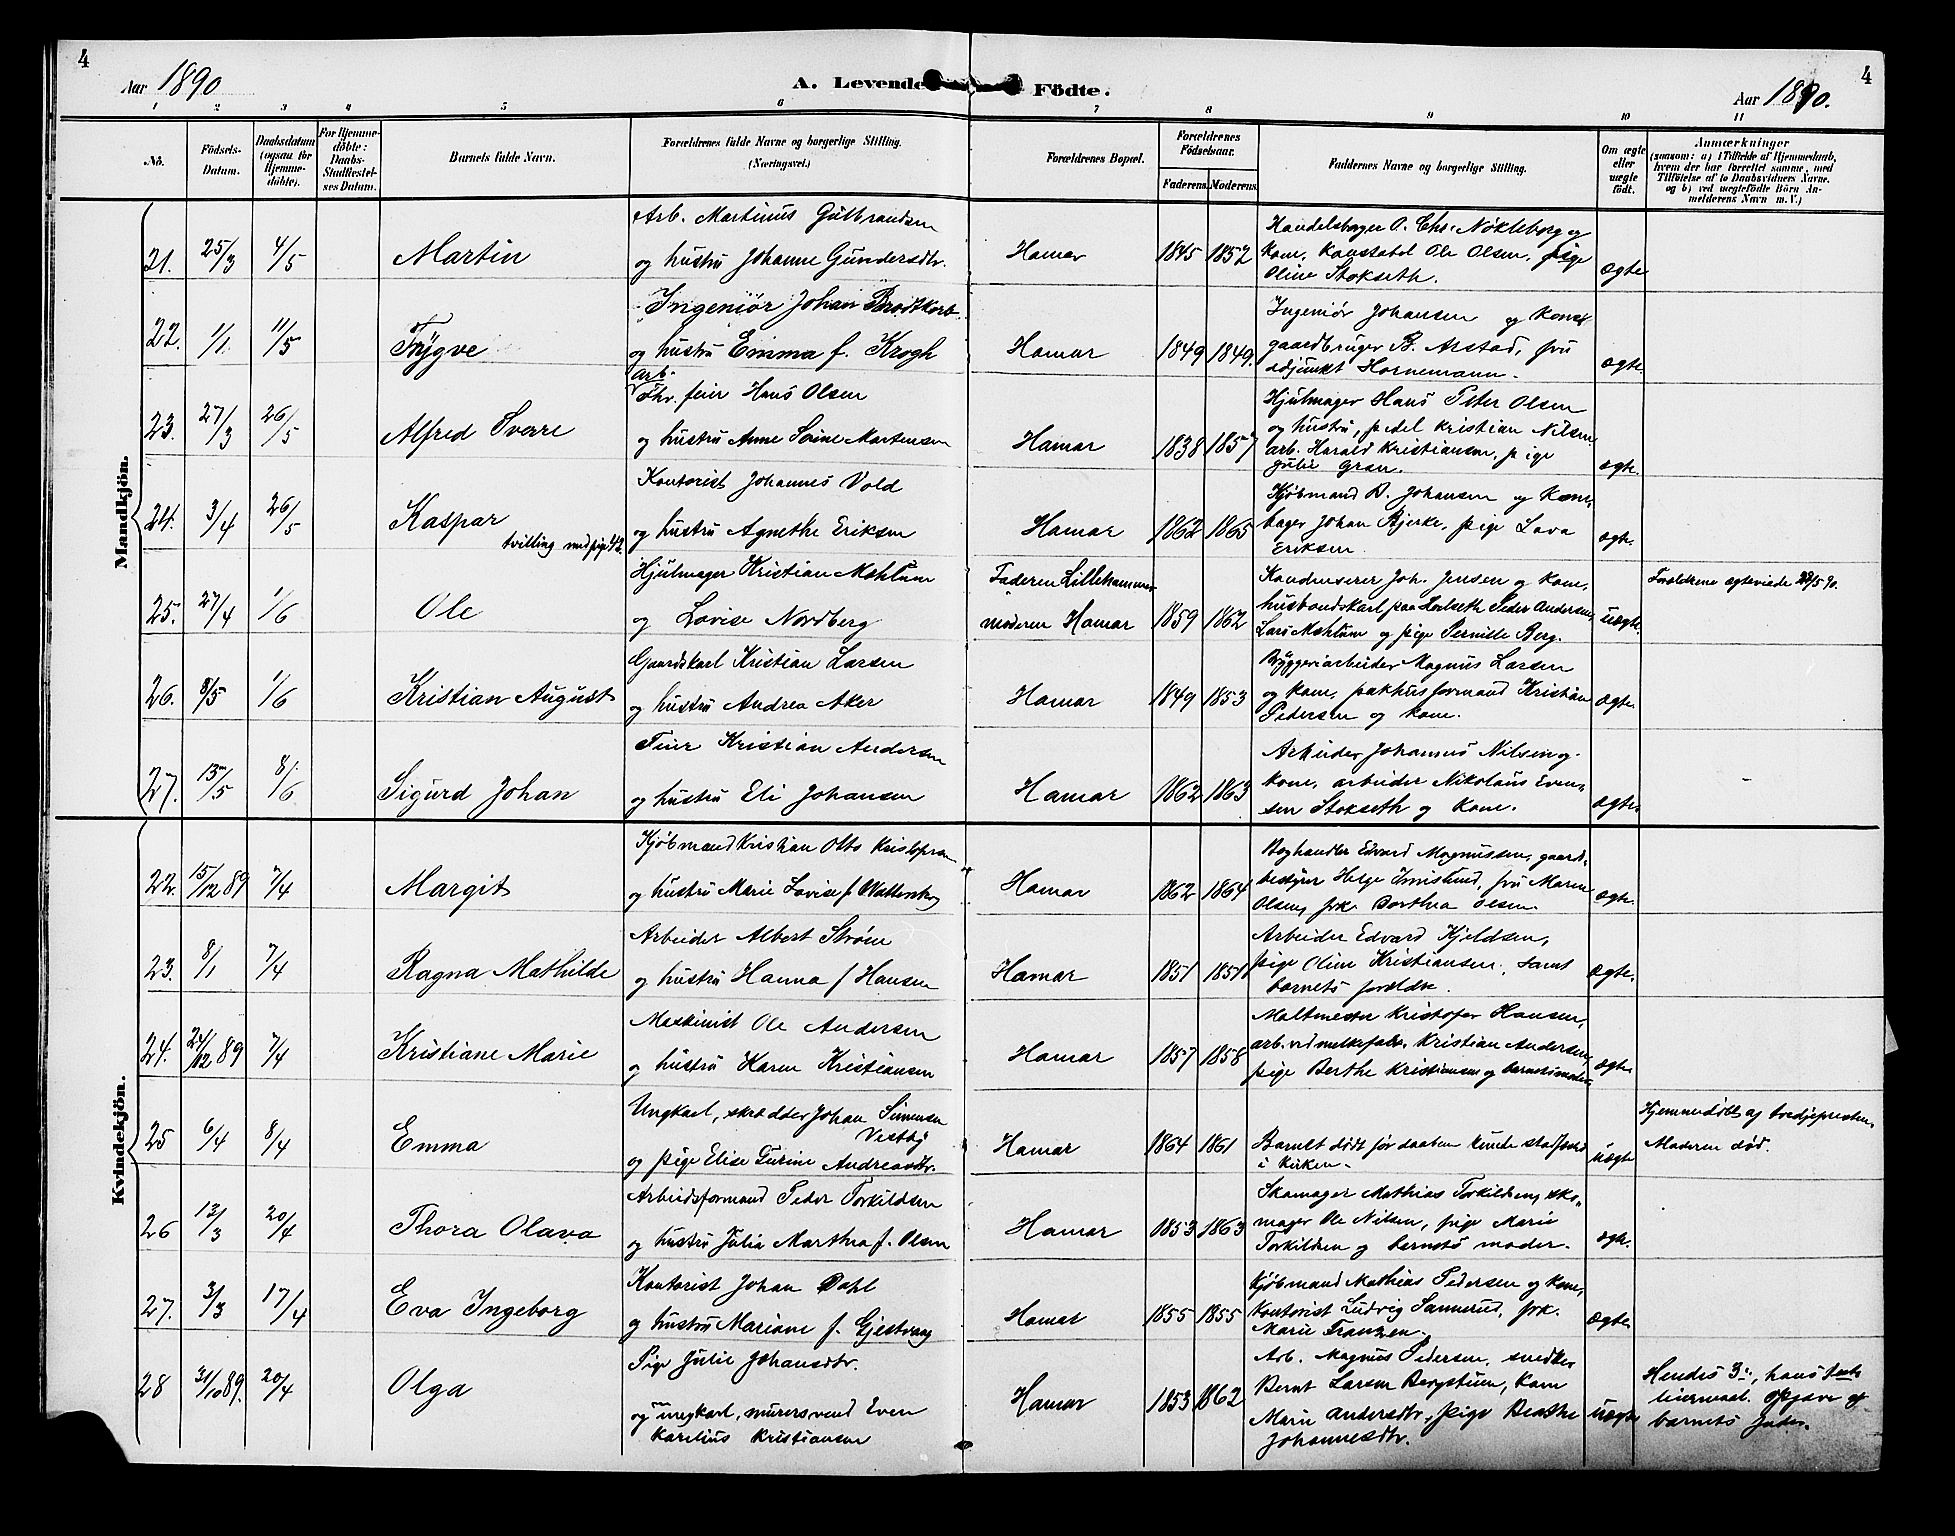 4
Aar 1890
A. Levende Födte.
Aar 1890.
4
1 2 3 4 5 6 7 8 9 10 11
No.
Födsels-Datum.
Daabsdatum (ogsaa for Hjemme-döbte).
For Hjemme-döbte: Daabs-Stadfæstel-ses Datum.
Barnets fulde Navn.
Forældrenes fulde Navne og borgerlige Stilling. (Næringsvei.)
Forældrenes Bopæl.
Forældrenes Födselsaar.
Faderens. Moderens.
Faddernes Navne og borgerlige Stilling.
Om ægte eller uægte födt.
Anmærkninger
(saasom: a) i Tilfælde af Hjemmedaab, hvem der har forrettet samme, med Tilföielse af to Daabsvidners Navne, og b) ved uægtefödte Börn An-melderens Navn m. V.)
Mandkjön.
21. 25/3 4/5 Martin
Arb. Martinus Gulbrandsen
og hustru Johanne Gundersdtr.
Hamar 1845 1852
Handelsborger O. Chr. Nøkleborg og
kone, konstabel Ole Olsen, pige
Oline Stokseth.
ægte
22. 1/1 11/5 Trygve
Ingeniør Johan Brodtkorb
og hustru Emma f. Krogh
Hamar 1849 1849.
Ingeniør Johansen og kone
gaardbruger B. Arstad, fru
adjunkt Hornemann.
ægte.
23. 27/3 26/5 Alfred Sverre
arb.
Fhv. feier Hans Olsen
og hustru Anne Sørine Mortensen
Hamar 1838 1857
Hjulmager Hans Peter Olsen
og hustru, pedel Kristian Nilsen
arb. Harald Kristiansen, pige
Julie Gran.
ægte.
24. 3/4 26/5 Kaspar
tvilling med pige 42.
Kontorist Johannes Vold
og hustru Agnethe Eriksen
Hamar 1862 1865
Kjøbmand B. Johansen og kone,
bager Johan Bjerke, pige Lava
Eriksen.
ægte.
25. 27/4 1/6 Ole
Hjulmager Kristian Mæhlum
og Lovise Nordberg
Faderen Lillehammer
moderen Hamar 1859 1862
Kondukterer Joh. Jensen og kone,
husbondskarl paa Peder Andersen,
Lars Mæhlum og pige Pernille Berg.
uægte.
Forældrene ægteviede 29/5 90.
26. 8/5 1/6 Kristian August
Gaardskarl Kristian Larsen
og hustru Andrea Aker
Hamar 1849 1853
Bryggeriarbeider Magnus Larsen
og kone, pakhusformand Kristian
Pedersen og kone.
ægte.
27. 13/5 8/6 Sigurd Johan
Feier Kristian Andersen
og hustru Eli Johansen
Hamar 1862 1863
Arbeider Johannes Nilsen og
kone, arbeider Nikolaus Even-
sen Stokseth og kone.
ægte.
Kvindekjön.
22. 15/12 89 7/4 Margit
Kjøbmand Kristian Otto Kristofersen
og hustru Marie Lovise f.
Hamar 1862 1864
Boghandler Edvard Magnussen, gaard-
bestyrer Helge Imislund, fru Maren
Olsen, frk. Borthea Olsen.
ægte.
23. 8/1 7/4 Ragna Mathilde
Arbeider Albert Strøm
og hustru Hanna f Hansen
Hamar 1851 1851
Arbeider Edvard Kjeldsen,
pige Oline Kristiansen, samt
barnets forældre.
ægte.
24. 24/12 89 7/4 Kristiane Marie
Maskinist Ole Andersen
og hustru Karen Kristiansen
Hamar 1857 1858
Maltmester Kristofer Hansen,
arb. ved melkefabr. Kristian Andersen,
pige Berthe Kristiansen og barnets moder.
ægte
25 6/4 8/4 Emma
Ungkarl, skrædder Johan Simensen
Vestby
og pige Elise Turine Andreasdtr.
Hamar 1864 1861
Barnet dødt før daaben kunde stadfæstes
i kirken.
uægte
Hjemmedøbt af tredjepresten.
Moderen død.
26 13/3 20/4 Thora Olava
Arbeidsformand Peder Torkildsen
og hustru Julia Marthea f. Olsen
Hamar 1853 1863
Skomager Mathias Torkildsen, sko-
mager Ole Nilsen, pige Marie
Torkildsen og barnets moder.
ægte.
27. 3/3 17/4 Eva Ingeborg
Kontorist Johan Dahl
og hustru Mariane f. Gjestvang
Hamar 1855 1855
Kjøbmand Mathias Pedersen og kone,
kontorist Ludvig Sannerud, frk.
Marie Franzen.
ægte
28 31/10 89. 20/4 Olga
Pige Julie Johansdtr.
og ungkarl, murersvend Even
Karelius Kristiansen
Hamar 1853 1862
Arb. Magnus Pedersen, snedker
Bernt Larsen Bergstuen, kone
Marie Andersdtr., pige Beathe
Johannesdtr.
uægte
Hendes 3:, hans
leiermaal. Opgave af
barnets fader.